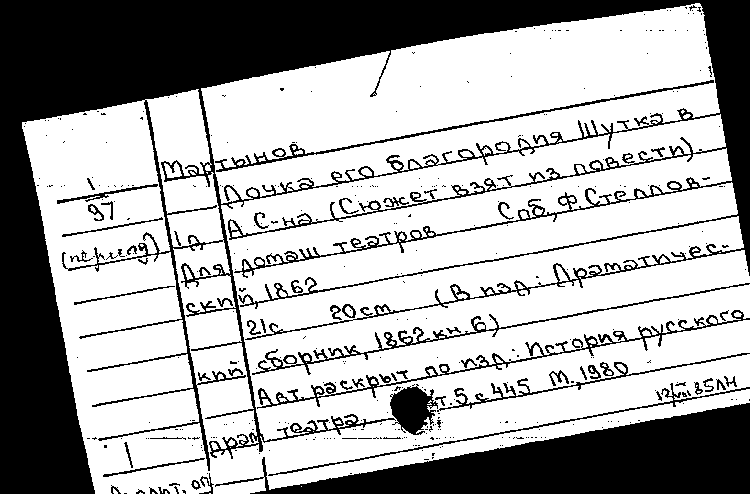 Мартынов
Дочка его благородия Шутка в
1
97
(период) 1д А. С-на. (Сюжет взят из повести).
Для домаш театров Спб, Ф. Стеллов-
ский, 1862
21с 20см (В изд: Драматичес-
кий сборник, 1862 кн. 6)
Авт. раскрыт по изд.: История русского
драм театра, т. 5, с 445 М., 1980
12/VIII 85 ЛН
1